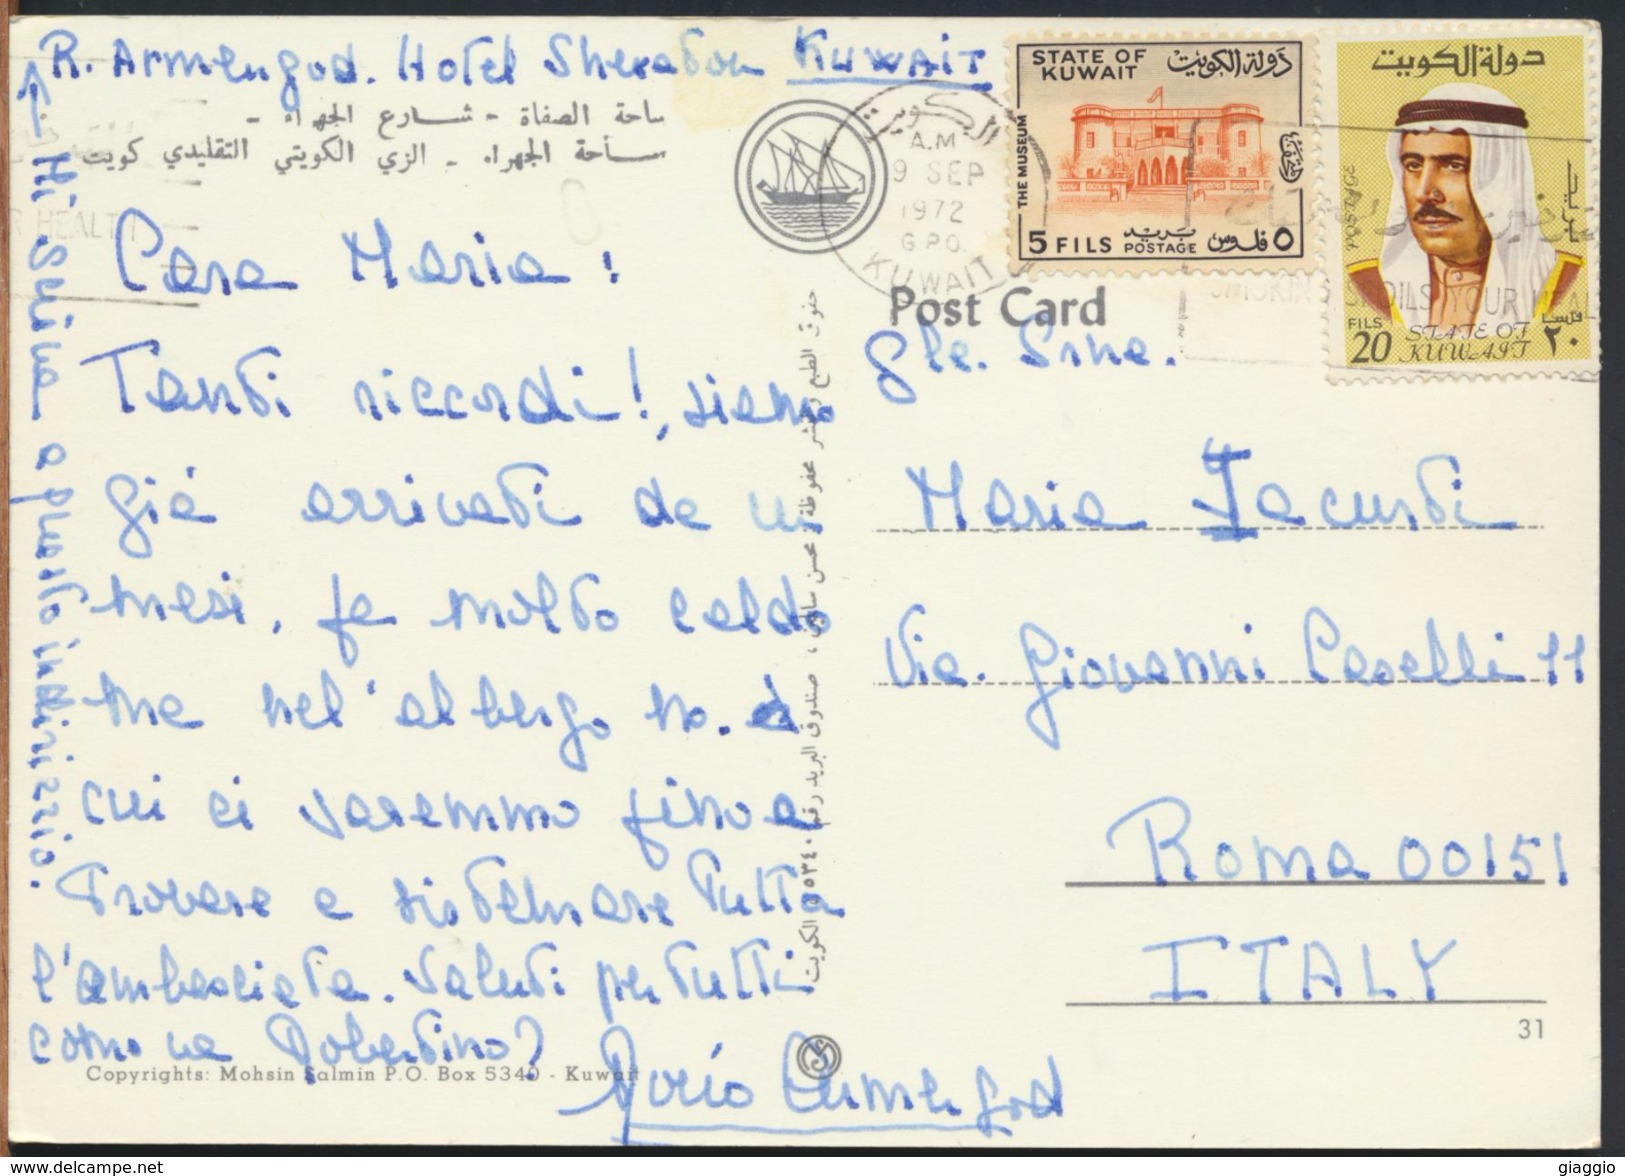 R. Armengod. Hotel Sheraton Kuwait
ساحة الصفاة - شارع الجهراء -
ساحة الجهراء - الزي الكويتي التقليدي كويت
Mi scriva a questo indirizzo.
Cara Maria:
Tanti riccordi!, siamo
già arrivati da un
mesi, fa molto caldo
ma nel'albergo no. è
cui ci saremmo fino a
trovare e sistemare tutta
l'ambasciata. Saluti per tutti
como va Robertino?
Armengod
Copyrights: Mohsin Salmin P.O. Box 5340 - Kuwait
حقوق الطبع والنشر محفوظة: محسن سالمين، صندوق البريد رقم ٥٣٤٠ الكويت
Post Card
الكويت
A.M
9 SEP
1972
G.P.O.
KUWAIT
STATE OF KUWAIT
دولة الكويت
THE MUSEUM
5 FILS
بريد
POSTAGE
٥ فلوس
دولة الكويت
POSTAGE
بريد
FILS 20
STATE OF KUWAIT
٢٠ فلسا
SMOKING SPOILS YOUR HEAL
R HEALTH
Gle. Snne.
Maria Iacursti
Via. Giovanni Caselli 11
Roma 00151
ITALY
31
delcampe.net
giaggio